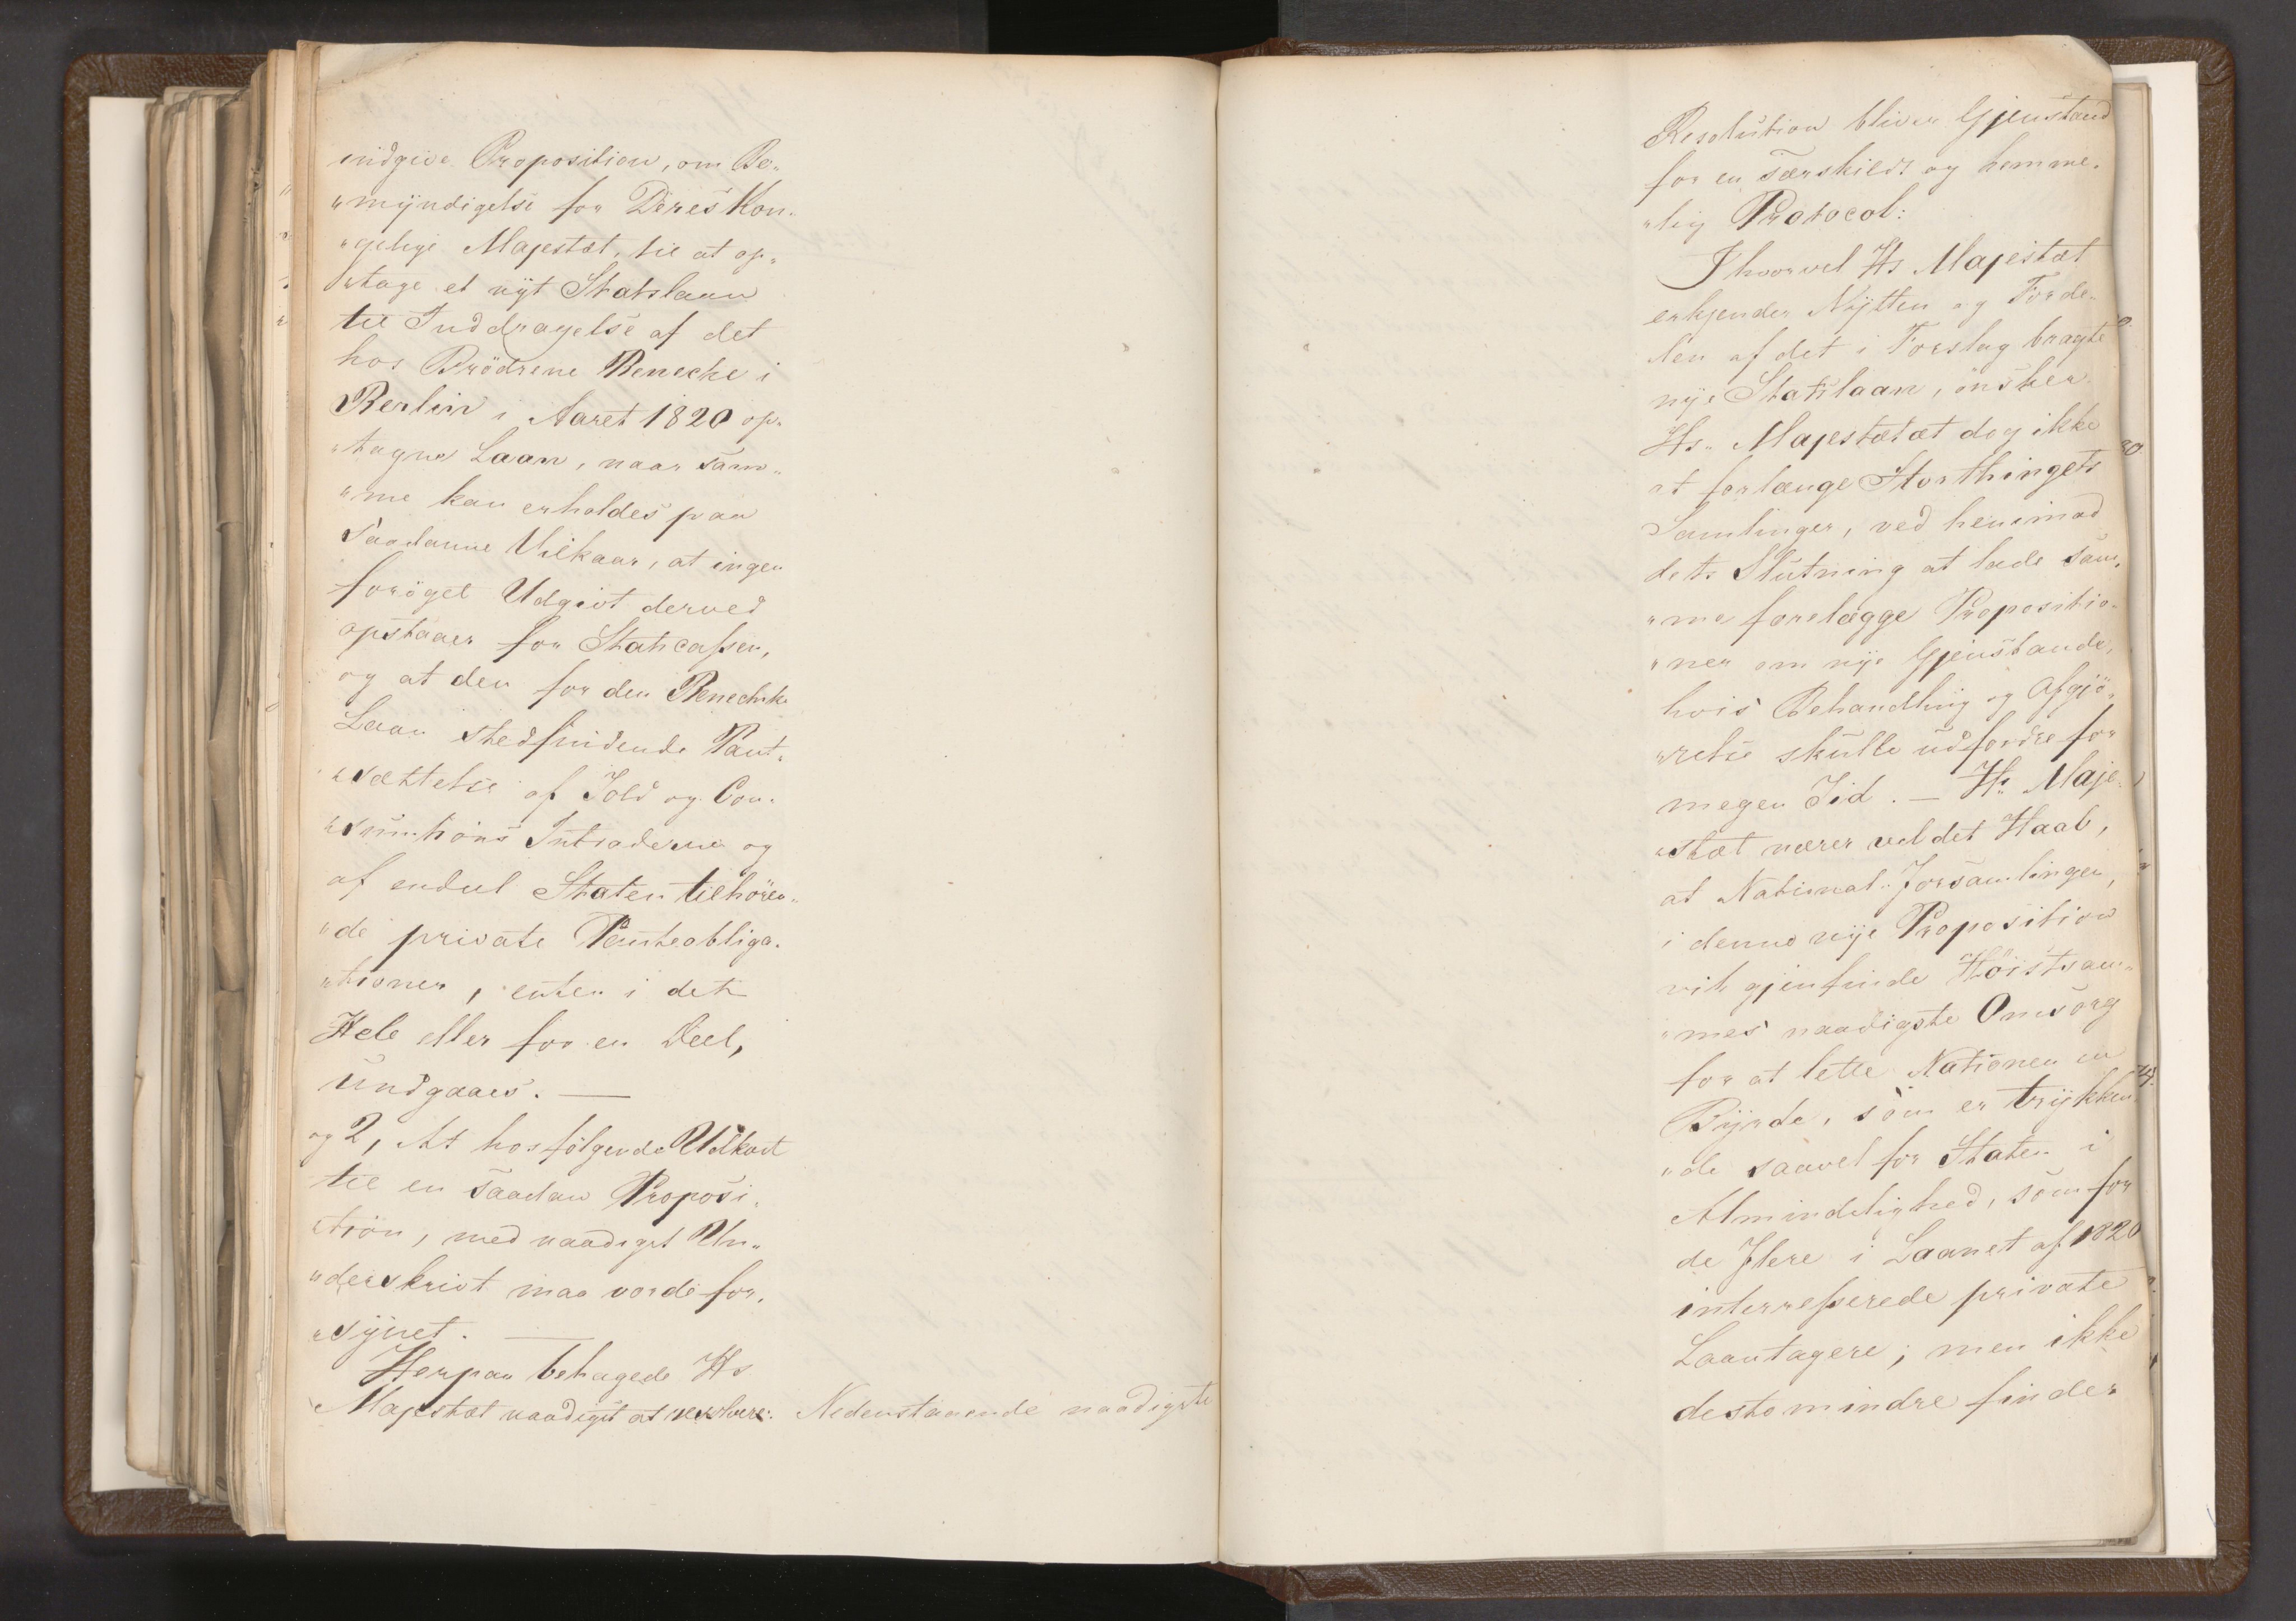 indgive Proposition, om Be„
„myndigelse for Deres Kon„
„gelige Majestæt, til at op„
„tage et nyt Statslaan
til Inddragelse af det
hos Brödrene Benecke i
Berlin i Aaret 1820 op„
„tagne Laan, naar sam„
„me kan erholdes paa
saadanne Vilkaar, at ingen
foröget Udgivt derved
opstaaer for Statscassen,
og at den for den Beneckske
Laan stedfindende Pant„
„sættelse af Told og Con„
„sumtions Intraderne og
af endeel Staten tilhören„
„de private Panteobliga„
„tioner, enten i det
Hele eller for en Deel,
undgaaes. —
og 2, At hosfölgende Udkast
til en saadan Proposi„
„tion, med naadigst Un„
„derskrivt maa vorde for„
„synet. —
Herpaa behagede Hs
Majestæt naadigst at resolvere: Nedenstaaende naadigste
Resolution bliver Gjenstand
for en særskildt og hemme„
„lig Protocol:
Ihvorvel Hs Majestæt
erkjender Nytten og Forde„
len af det i Forslag bragte
nye Statslaan, önsker
Hs. Majestætæt dog ikke
at forlænge Storthingets
Samlinger, ved henimod
dets Slutning at lade sam„
„me forelægge Propositio„
„ner om nye Gjenstande,
hvis Behandling og Afgjö„
„relse skulle udfordre for
megen Tid. — Hs. Maje„
„stæt nærer vel det Haab,
at National-Forsamlingen,
i denne nye Proposition
vil gjenfinde Höistsam„
„mes naadigste Omsorg
for at lette Nationen en
Byrde, som er trykken„
„de saavel for Staten i
Almindelighed, som for
de Flere i Laanet af 1820
interresserede private
Laantagere; men ikke
destomindre finder